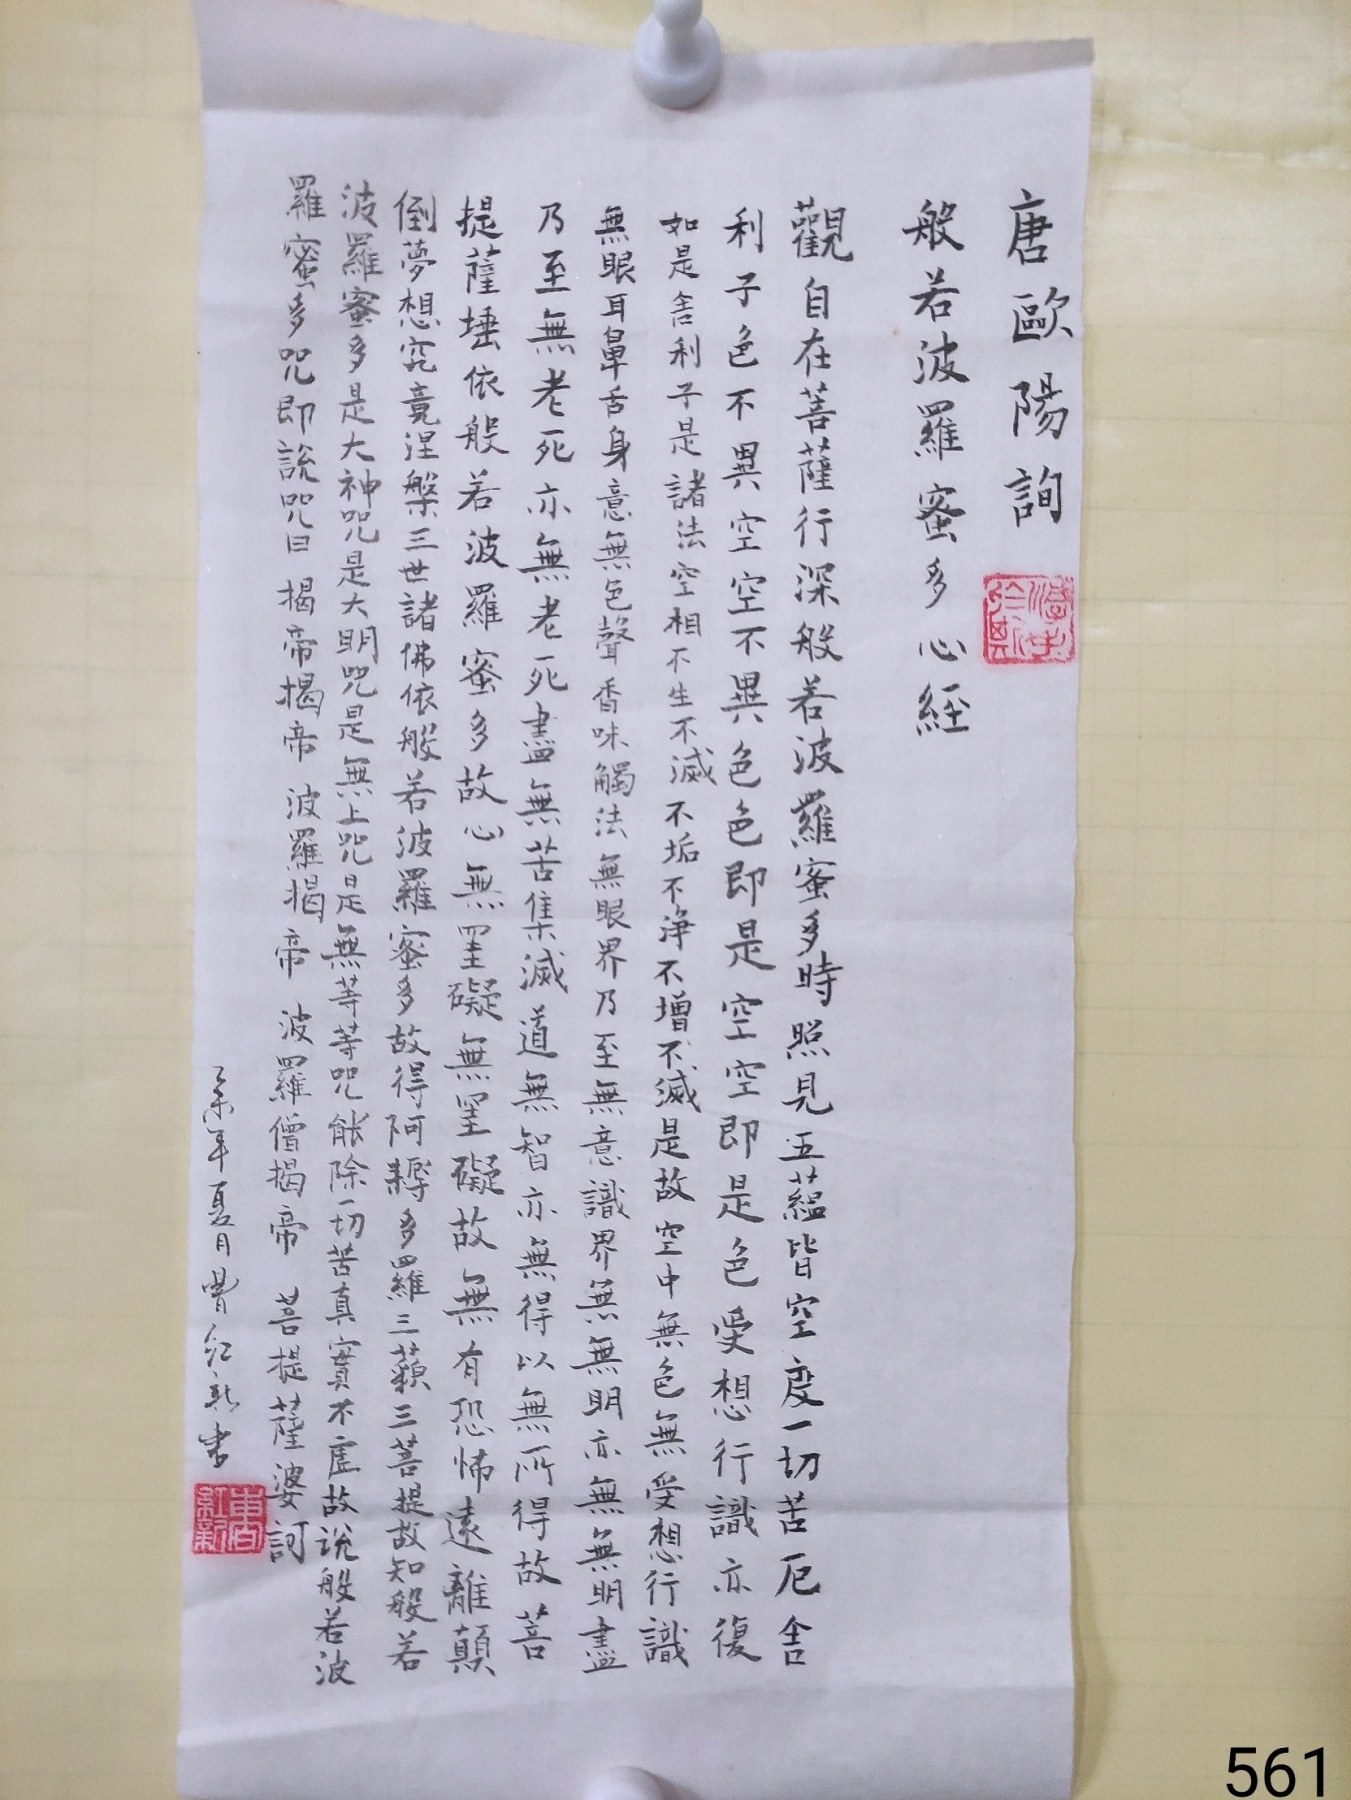 唐歐陽詢
般若波羅蜜多心經
觀自在菩薩行深般若波羅蜜多時照見五蘊皆空度一切苦厄舍
利子色不異空空不異色色即是空空即是色受想行識亦復
如是舍利子是諸法空相不生不滅不垢不淨不增不滅是故空中無色無受想行識
無眼耳鼻舌身意無色聲香味觸法無眼界乃至無意識界無無明亦無無明盡
乃至無老死亦無老死盡無苦集滅道無智亦無得以無所得故菩
提薩埵依般若波羅蜜多故心無罣礙無罣礙故無有恐怖遠離顛
倒夢想究竟涅槃三世諸佛依般若波羅蜜多故得阿耨多羅三藐三菩提故知般若
波羅蜜多是大神咒是大明咒是無上咒是無等等咒能除一切苦真實不虛故說般若波
羅蜜多咒即說咒曰揭帝揭帝 波羅揭帝 波羅僧揭帝 菩提薩婆訶
年夏月曹紅新書
曹紅新
561